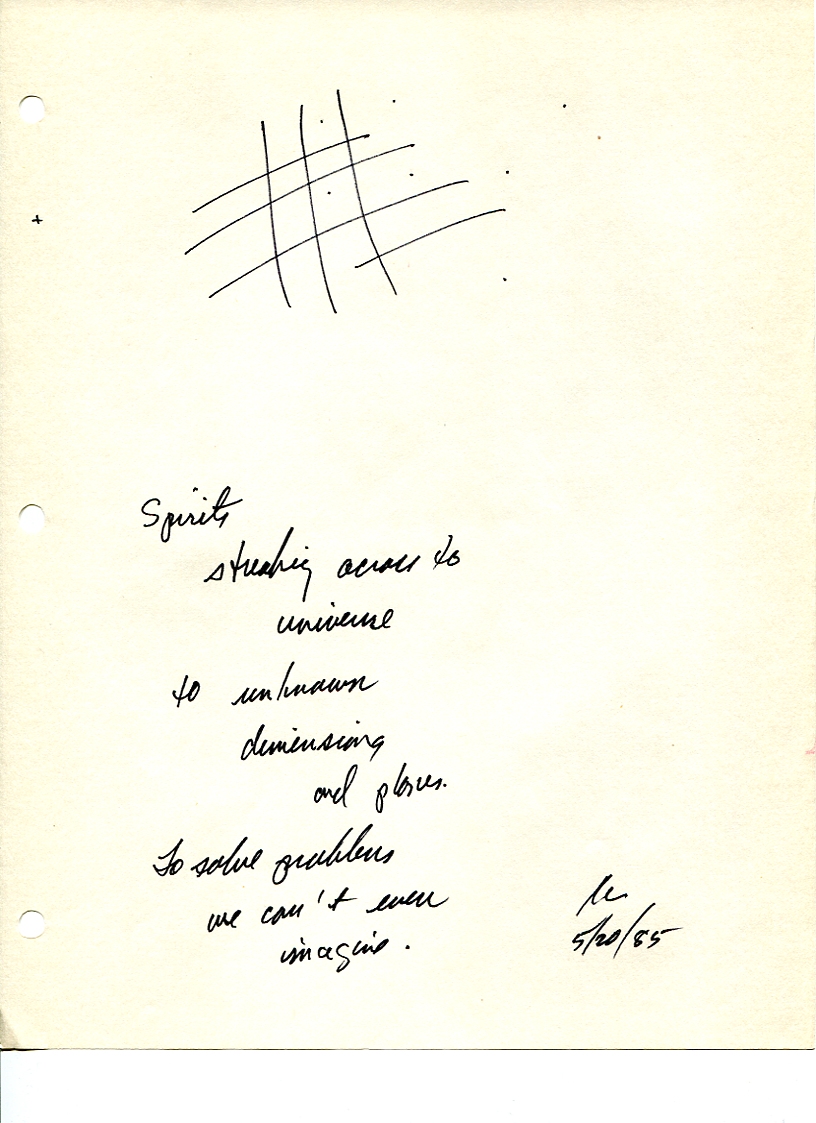 Spirits
streaking across to
universe
to unknown
dimensions
and places.
To solve problems
we can't even
imagine.
5/20/85